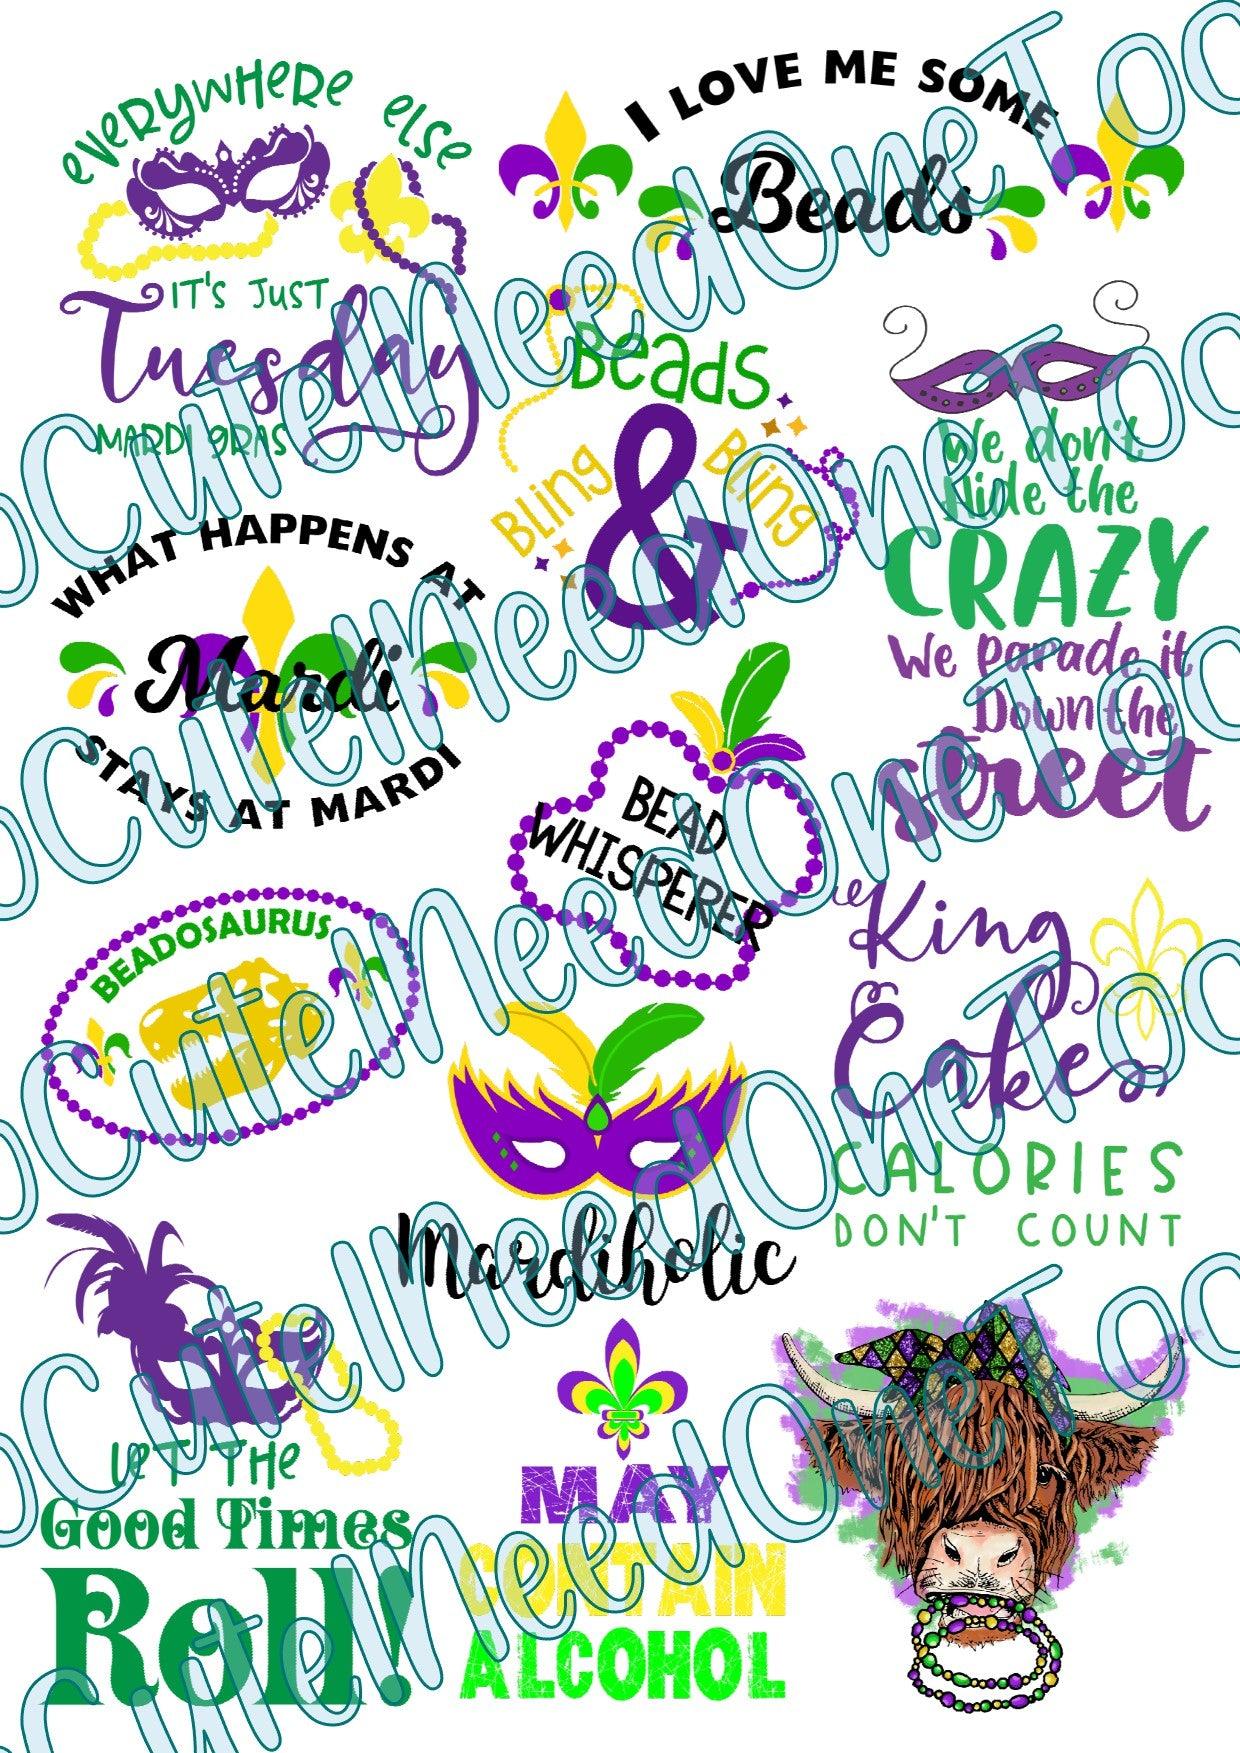 everywhere else
IT'S JUST
Tuesday
MARDI GRAS
I LOVE ME SOME
Beads
Beads
Bling & Bling
We don't
Hide the
CRAZY
We Parade it
Down the
Street
WHAT HAPPENS AT
Mardi
STAYS AT MARDI
BEAD
WHISPERER
BEADOSAURUS
King
Cakes
CALORIES
DON'T COUNT
Mardiholic
LET THE
Good Times
Roll!
MAY
CONTAIN
ALCOHOL
oCuteINeedOneToo
oCuteINeedOneToo
oCuteINeedOneToo
oCuteINeedOneToo
oCuteINeedOneToo